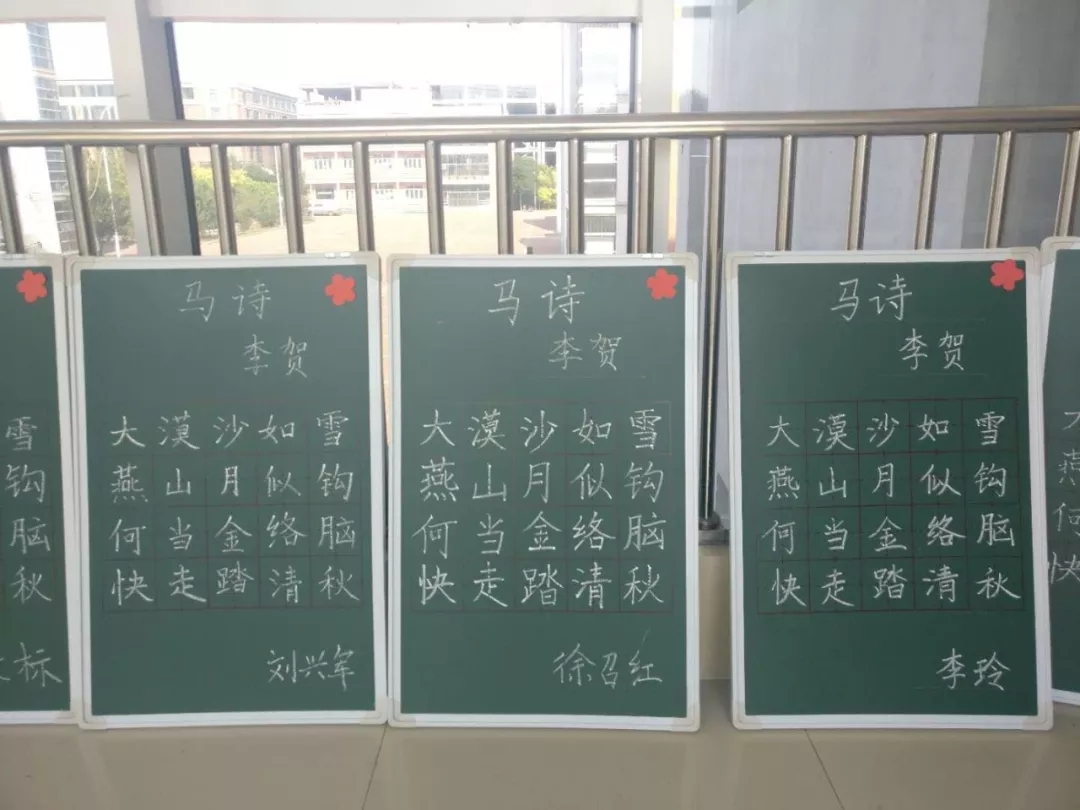 雪
钩
脑
秋
标
马诗
李贺
大漠沙如雪
燕山月似钩
何当金络脑
快走踏清秋
刘兴军
马诗
李贺
大漠沙如雪
燕山月似钩
何当金络脑
快走踏清秋
徐召红
马诗
李贺
大漠沙如雪
燕山月似钩
何当金络脑
快走踏清秋
李玲
燕
何
快